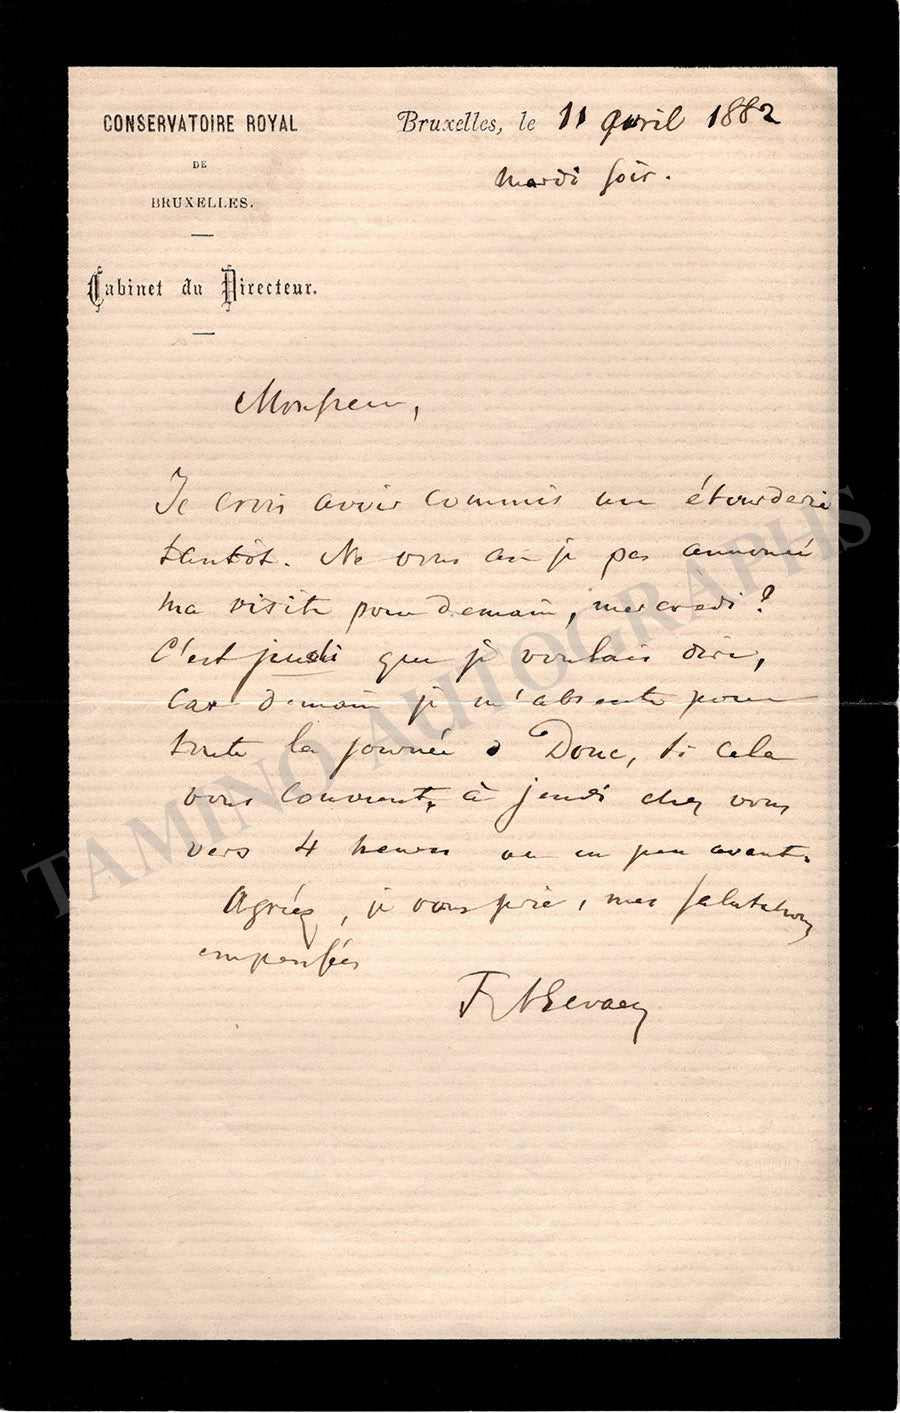 CONSERVATOIRE ROYAL
DE
BRUXELLES.
Cabinet du Directeur.
Bruxelles, le 11 avril 1882
mardi soir.
Monsieur,
Je crois avoir commis un étourderie
tantôt. Ne vous ai je pas annoncé
ma visite pour demain, mercredi?
C'est jeudi que je voulais dire,
car demain je m'absente pour
toute la journée. Donc, si cela
vous convient, à jeudi chez vous
vers 4 heures ou un peu avant.
Agréez, je vous prie, mes salutations
empressées
FAGevaert
TAMINO AUTOGRAPHS